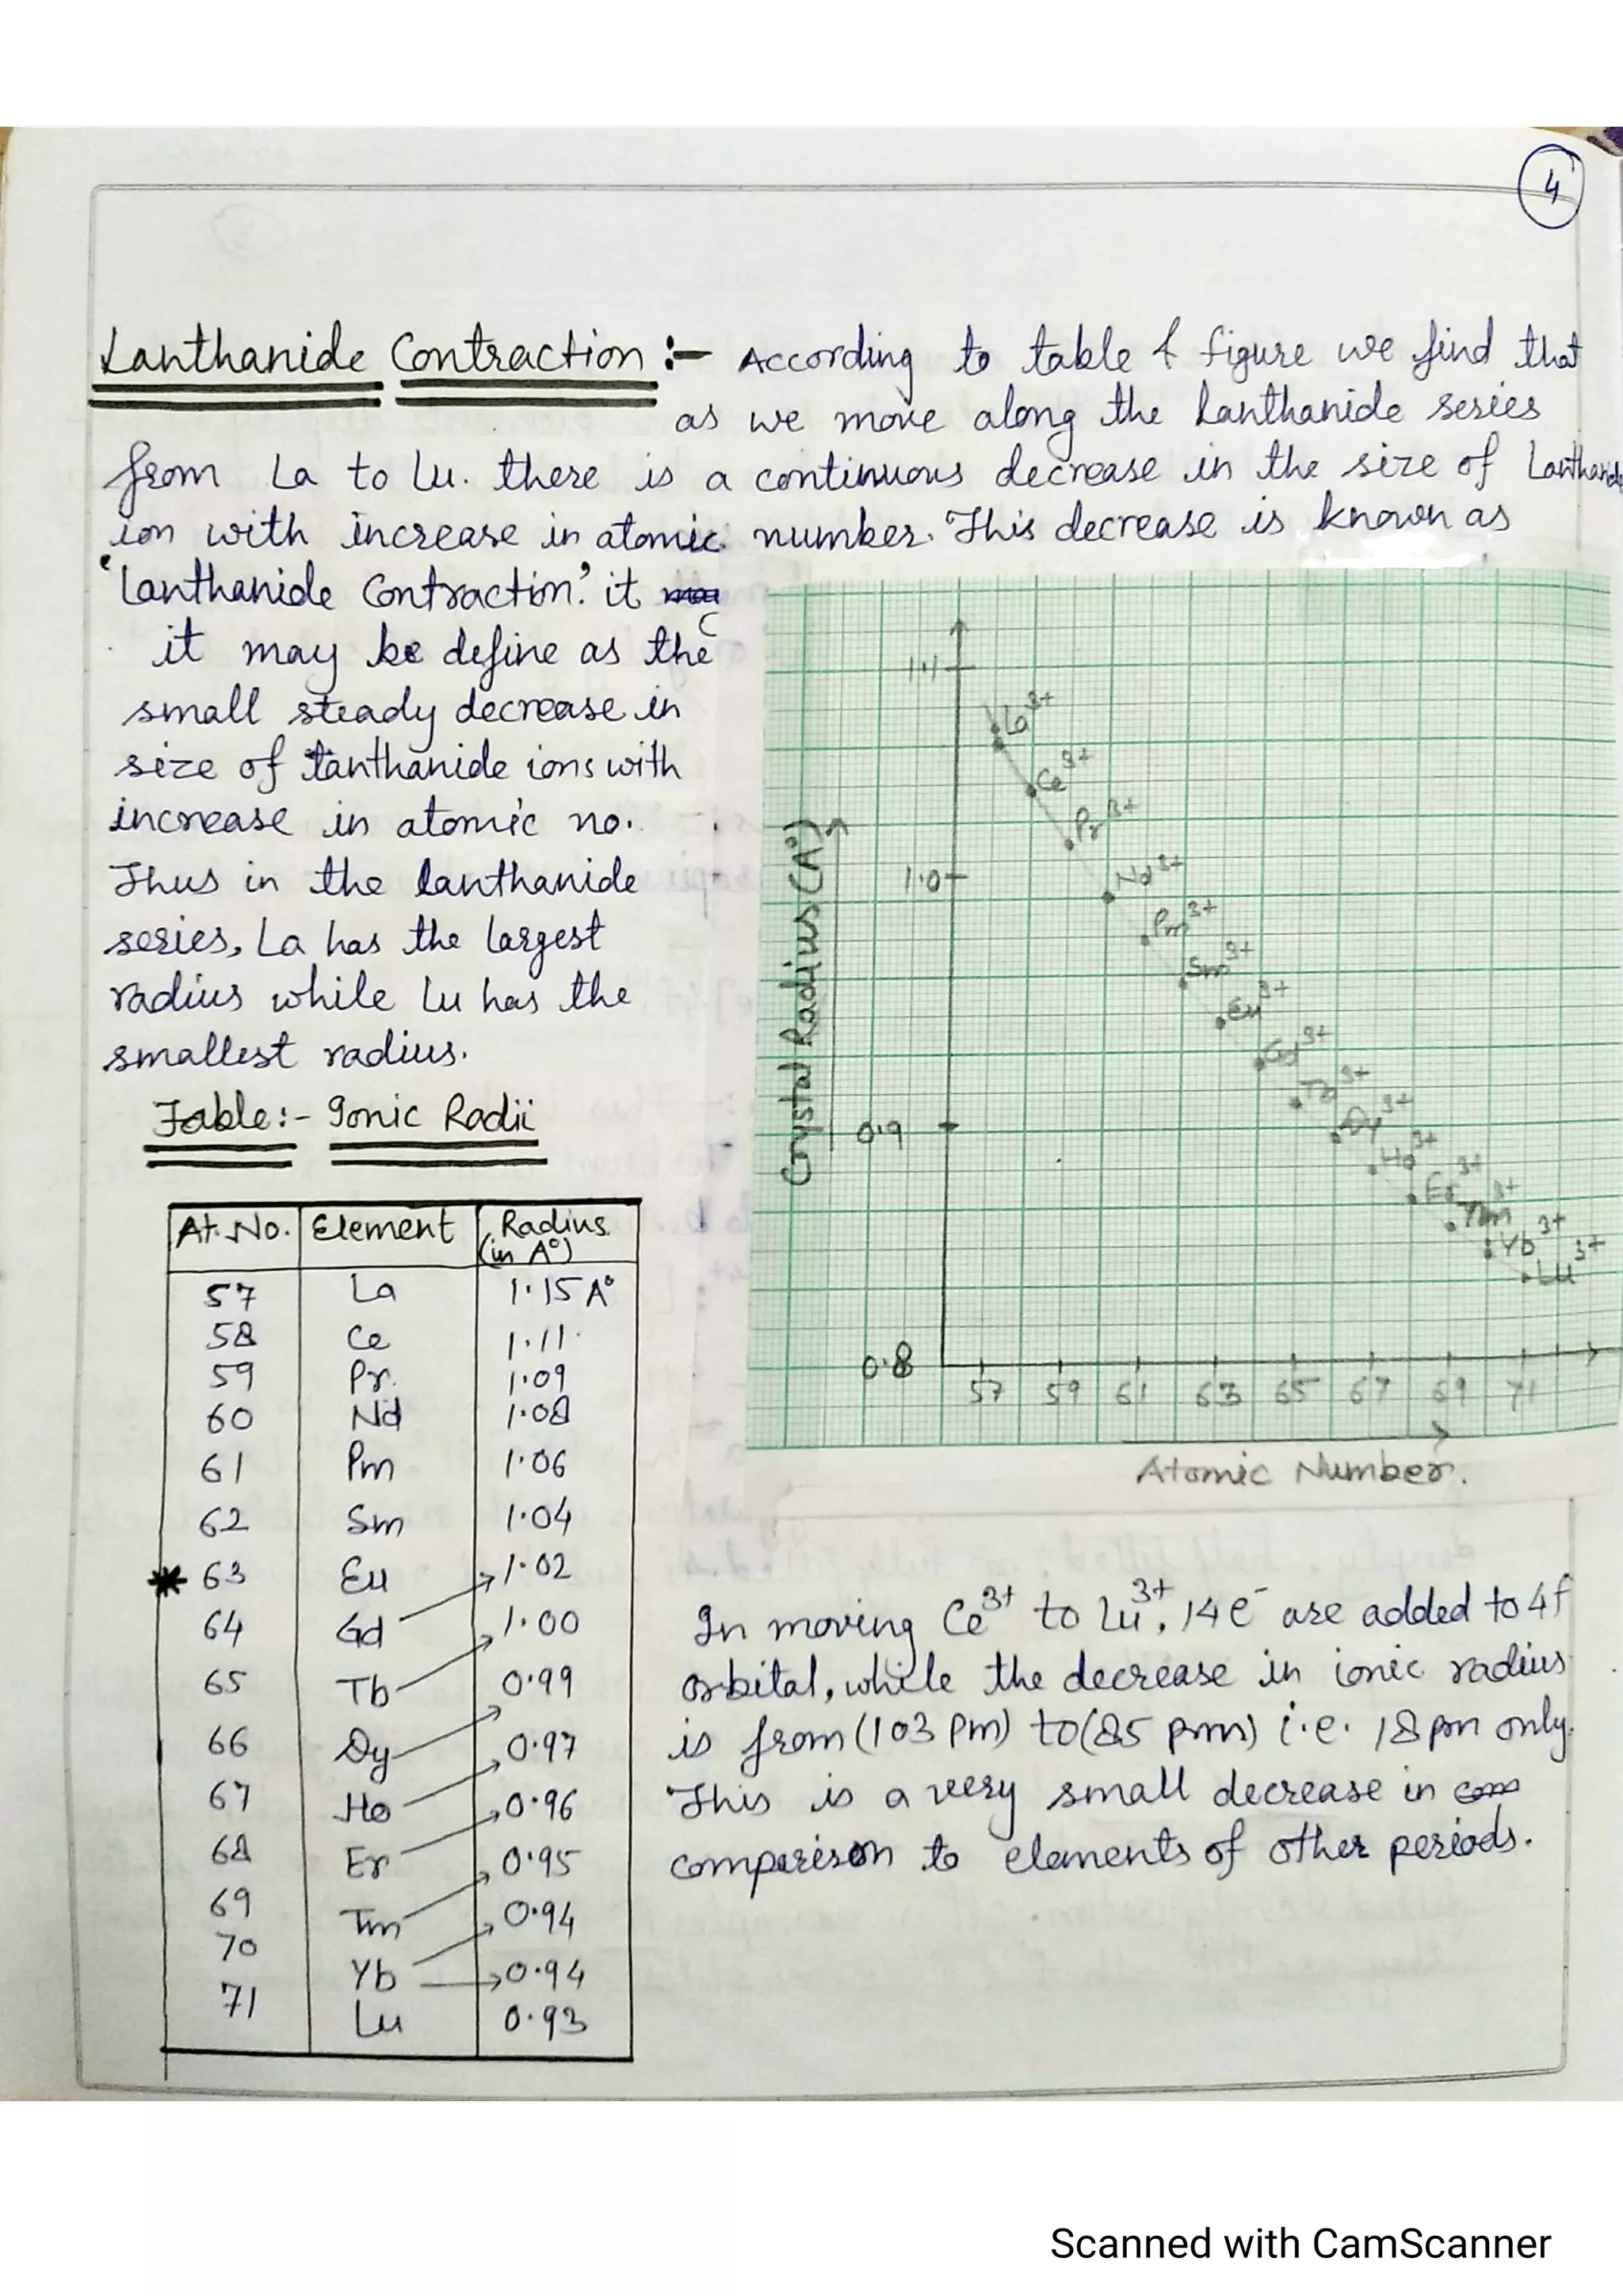 4
Lanthanide Contraction :- According to table & figure we find that
as we move along the Lanthanide series
from La to Lu. there is a continuous decrease in the size of Lanthanide
ion with increase in atomic number. This decrease is known as
'Lanthanide Contraction'. it
it may be define as the
small steady decrease in
size of lanthanide ions with
increase in atomic no.
Thus in the lanthanide
series, La has the largest
radius while Lu has the
smallest radius.
Table :- Ionic Radii
At. No. Element Radius (in A°)
57 La 1.15 A°
58 Ce 1.11
59 Pr. 1.09
60 Nd 1.08
61 Pm 1.06
62 Sm 1.04
63 Eu 1.02
64 Gd 1.00
65 Tb 0.99
66 Dy 0.97
67 Ho 0.96
68 Er 0.95
69 Tm 0.94
70 Yb 0.94
71 Lu 0.93
Crystal Radius (A°)
1.1
1.0
0.9
0.8
La3+
Ce3+
Pr3+
Nd3+
Pm3+
Sm3+
Eu3+
Gd3+
Tb3+
Dy3+
Ho3+
Er3+
Tm3+
Yb3+
Lu3+
57 59 61 63 65 67 69 71
Atomic Number.
In moving Ce3+ to Lu3+, 14e- are added to 4f
orbital, while the decrease in ionic radius
is from (103 Pm) to (85 pm) i.e. 18 pm only.
This is a very small decrease in
comparison to elements of other periods.
Scanned with CamScanner